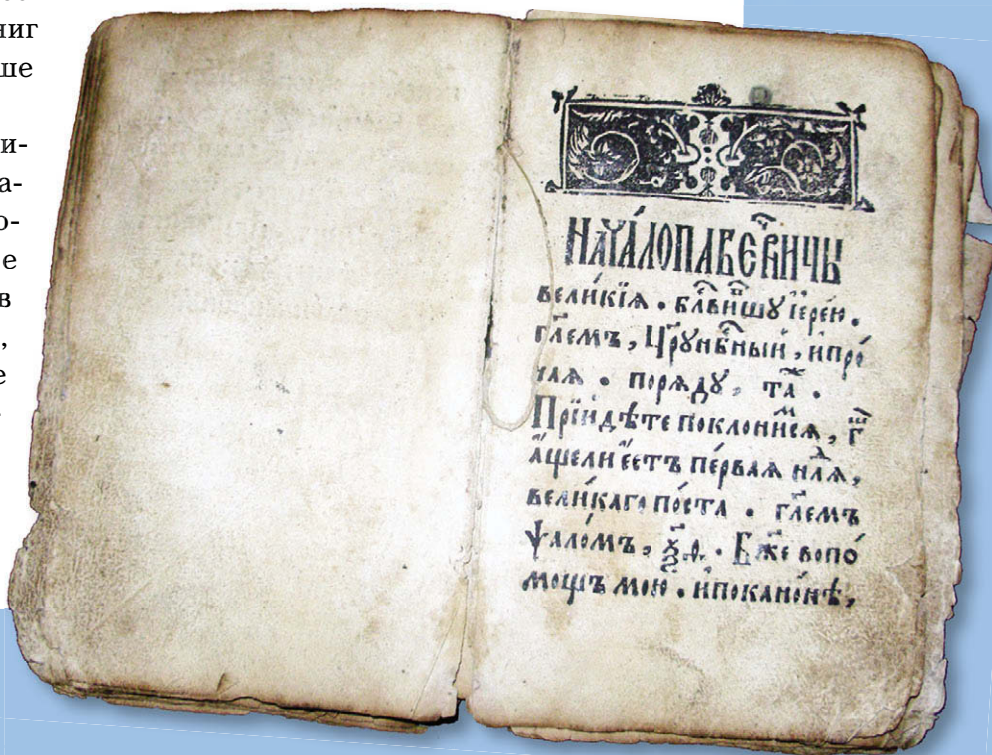 ниг
ше
и-
а-
о-
е
в
,
е
НАЧА́ЛОПАВЕЧЕ́РНИЦЫ
вели́кїѧ . бл҃ви́вшꙋ їере́ю .
гл҃емъ , Цр҃ю нбⷭ҇ный , и҆про́
чаѧ . порѧдꙋ , таⷤ .
Прїидѣ́те поклони́мсѧ , г҃ⷳ
а҆́ще ли є҆́стъ пе́рваѧ нⷣлѧ ,
вели́каго по́ста . гл҃емъ
ѱало́мъ , ѯ҃ѳ . Бж҃е вопо́
мощъ мою̀ . и҆поканѡ́нѣ ,